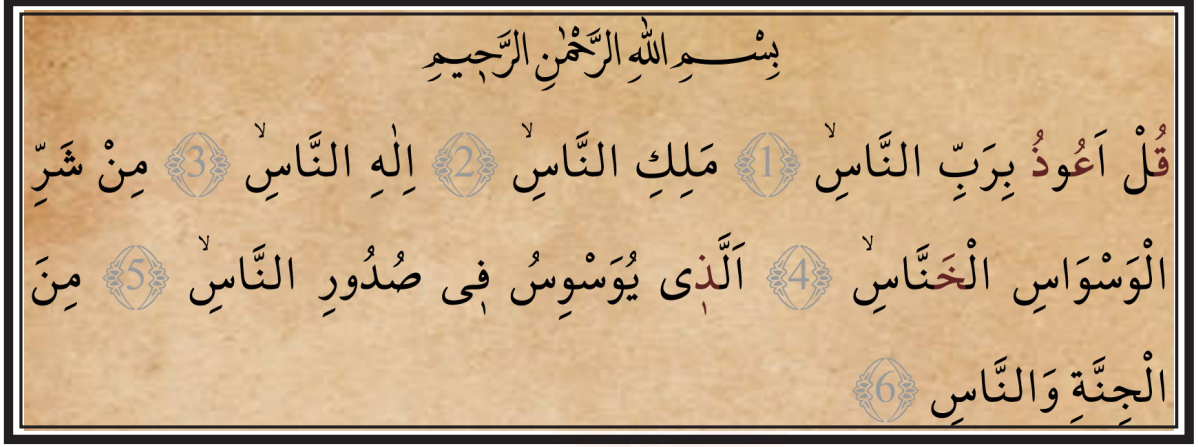 بِسْــــمِ اللّٰهِ الرَّحْمٰنِ الرَّحٖيمِ
قُلْ اَعُوذُ بِرَبِّ النَّاسِۙ ﴿1﴾ مَلِكِ النَّاسِۙ ﴿2﴾ اِلٰهِ النَّاسِۙ ﴿3﴾ مِنْ شَرِّ
الْوَسْوَاسِ الْخَنَّاسِۙ ﴿4﴾ اَلَّذٖى يُوَسْوِسُ فٖى صُدُورِ النَّاسِۙ ﴿5﴾ مِنَ
الْجِنَّةِ وَالنَّاسِ ﴿6﴾